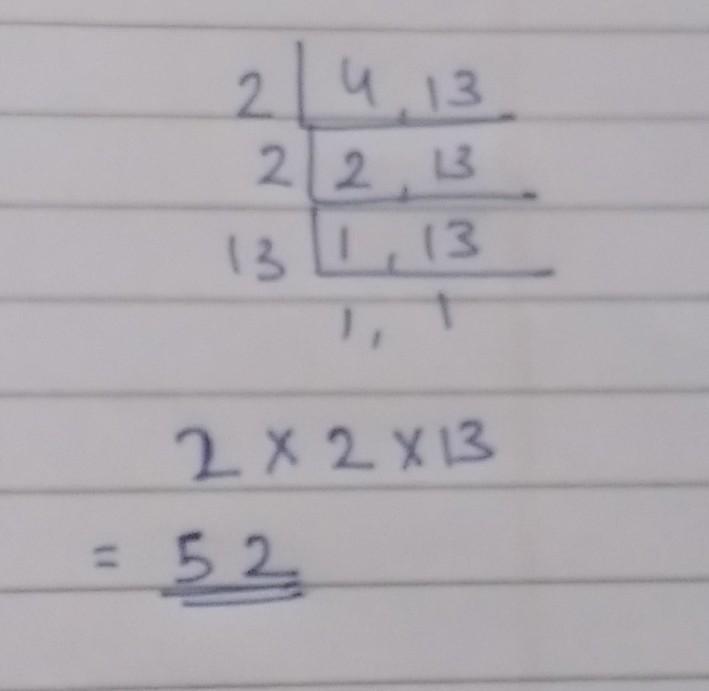 2 | 4, 13
2 | 2, 13
13 | 1, 13
1, 1
2 × 2 × 13
= 52